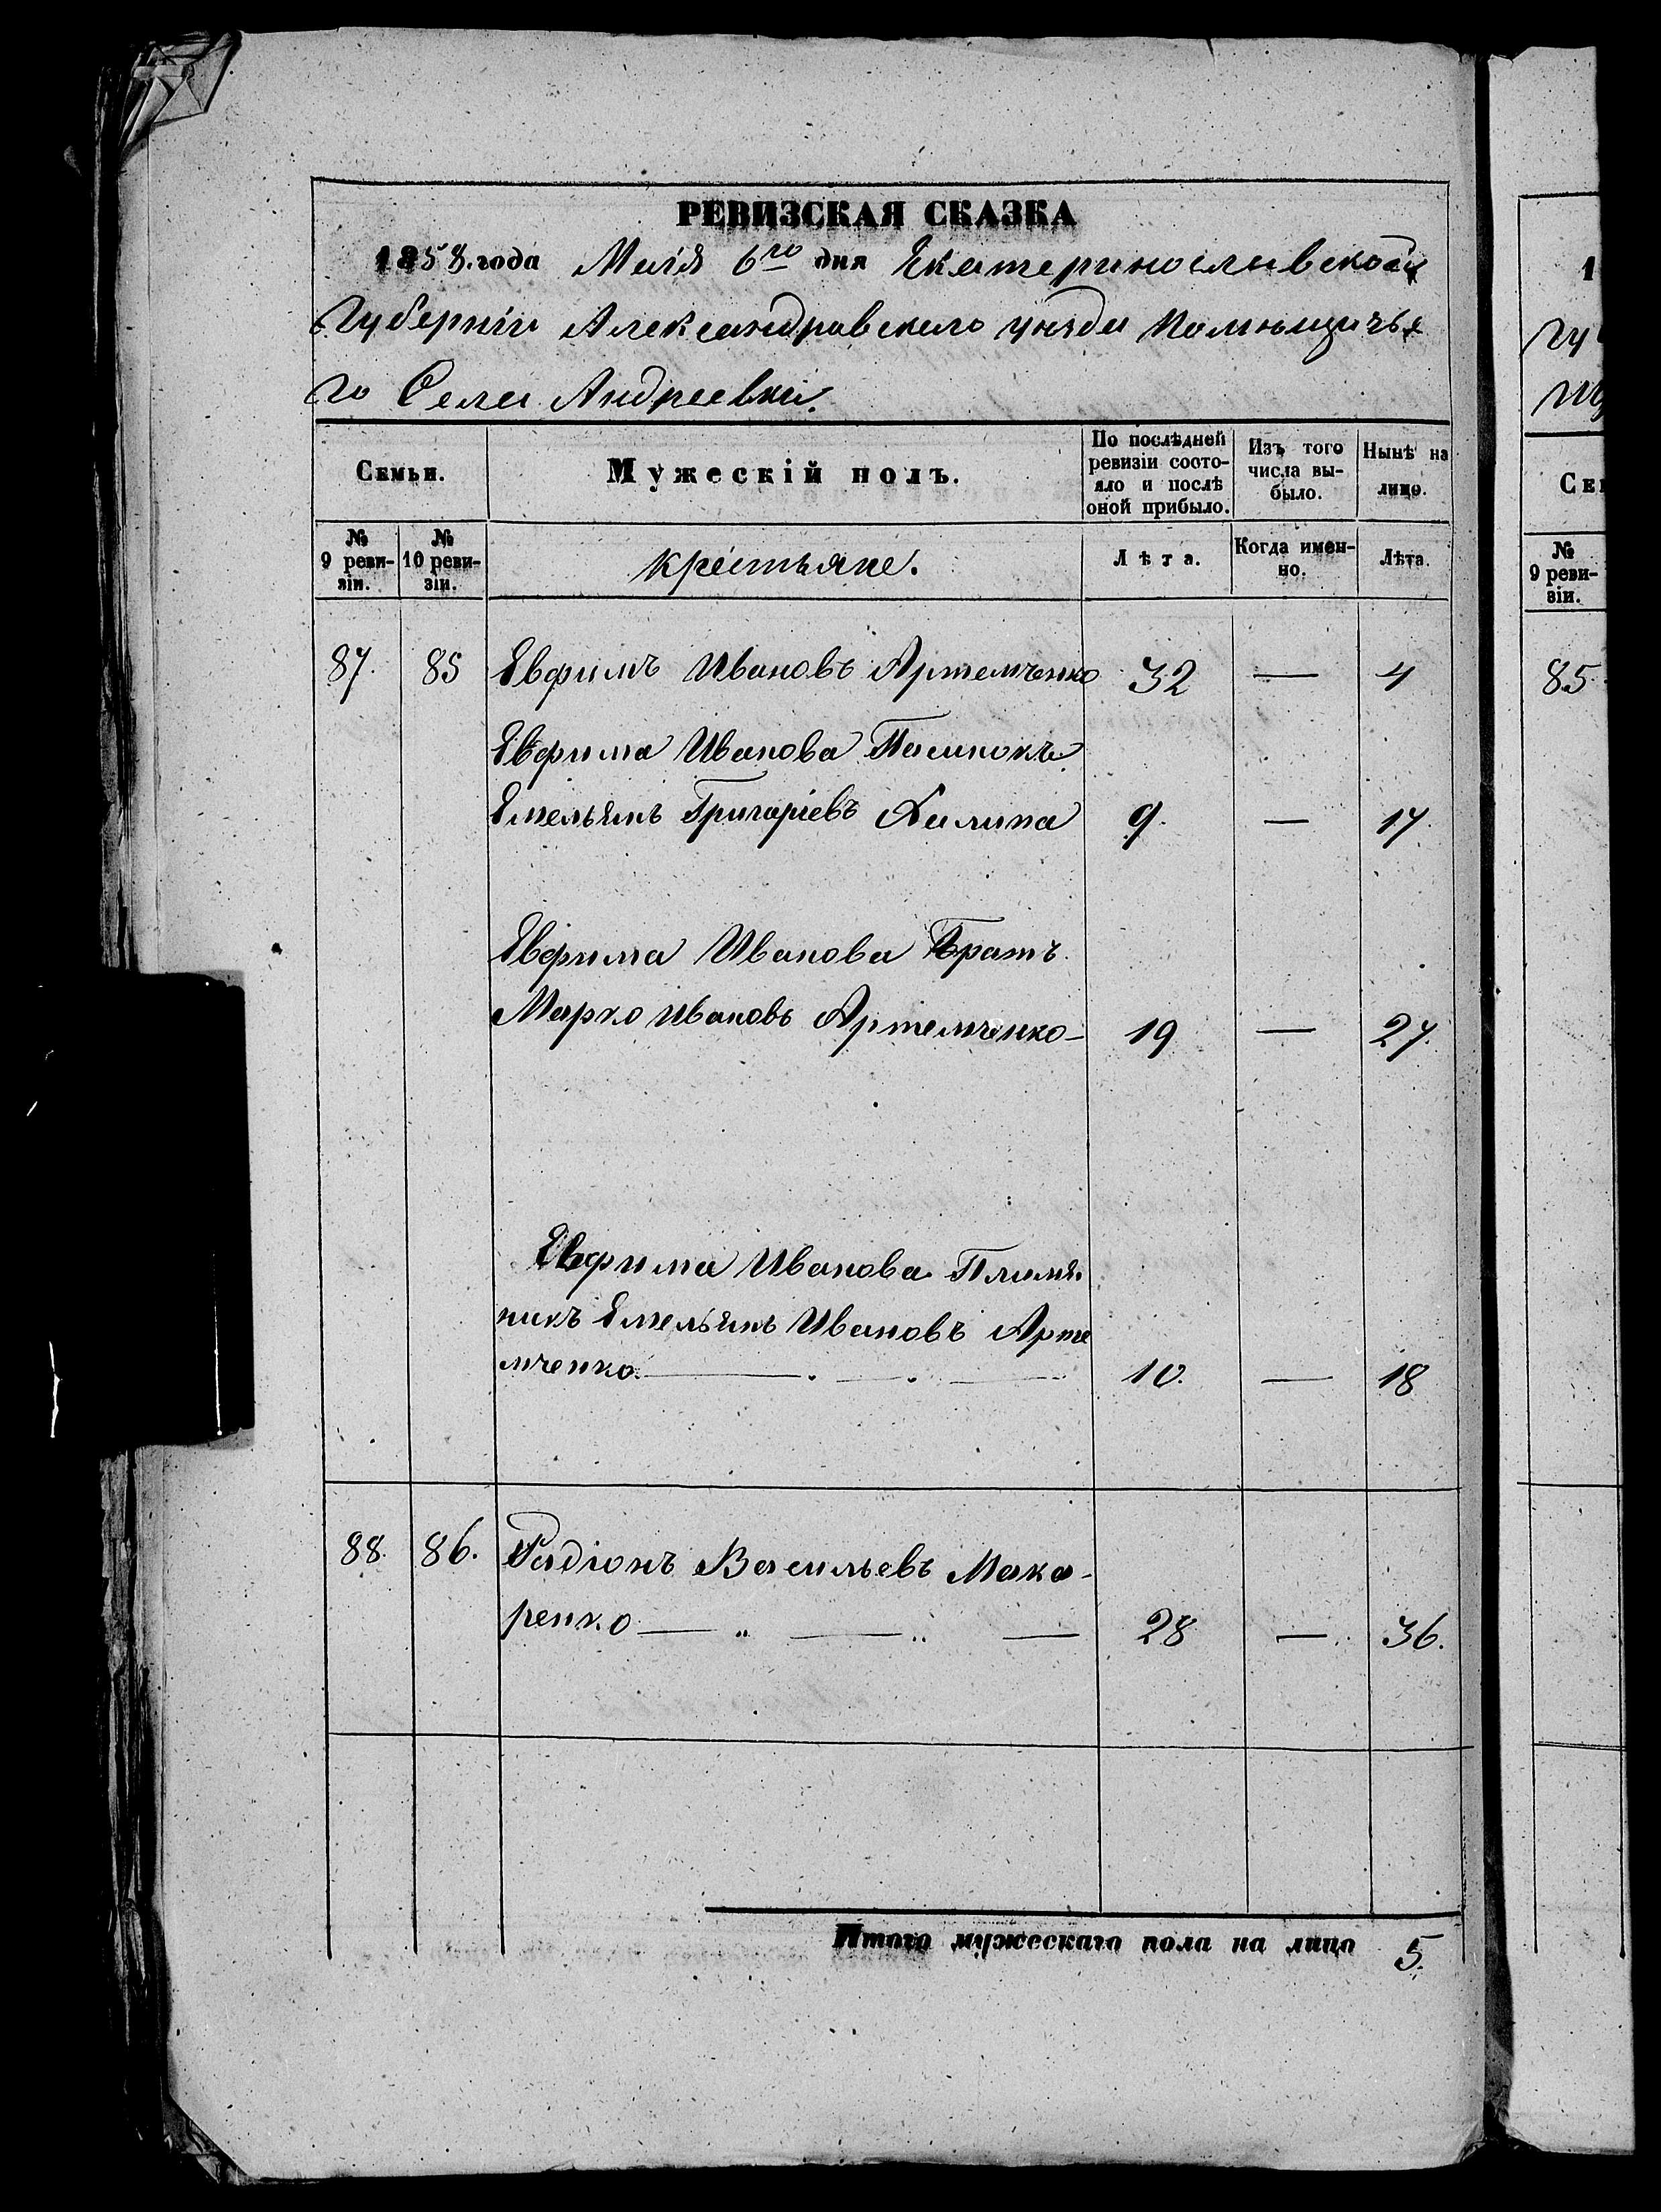 РЕВИЗСКАЯ СКАЗКА
1858. года Маія 6го дня Екатеринославской
Губерніи Александровскаго уѣзда Помѣщичья
го Села Андреевки.
Семьи.
Мужескій полъ.
По послѣдней ревизіи состояло и послѣ оной прибыло.
Изъ того числа выбыло.
Нынѣ на лицо.
№ 9 ревизіи.
№ 10 ревизіи.
крестьяне.
Лѣта.
Когда именно.
Лѣта.
87. 85 Евфимъ Ивановъ Артемченко 32 — 4
Евфима Иванова
Емельянъ Григоріевъ 9. — 17.
Евфима Иванова Братъ
Марко Ивановъ Артемченко — 19 — 27.
Евфима Иванова Племя
никъ Емельянъ Ивановъ Арте
мченко. — 10. — 18
88. 86. Радіонъ Васильевъ Мака-
ренко — „ — „ — 28 — 36.
Итого мужескаго пола на лицо 5.
1
гу
Сем
№ 9 ревизіи.
85